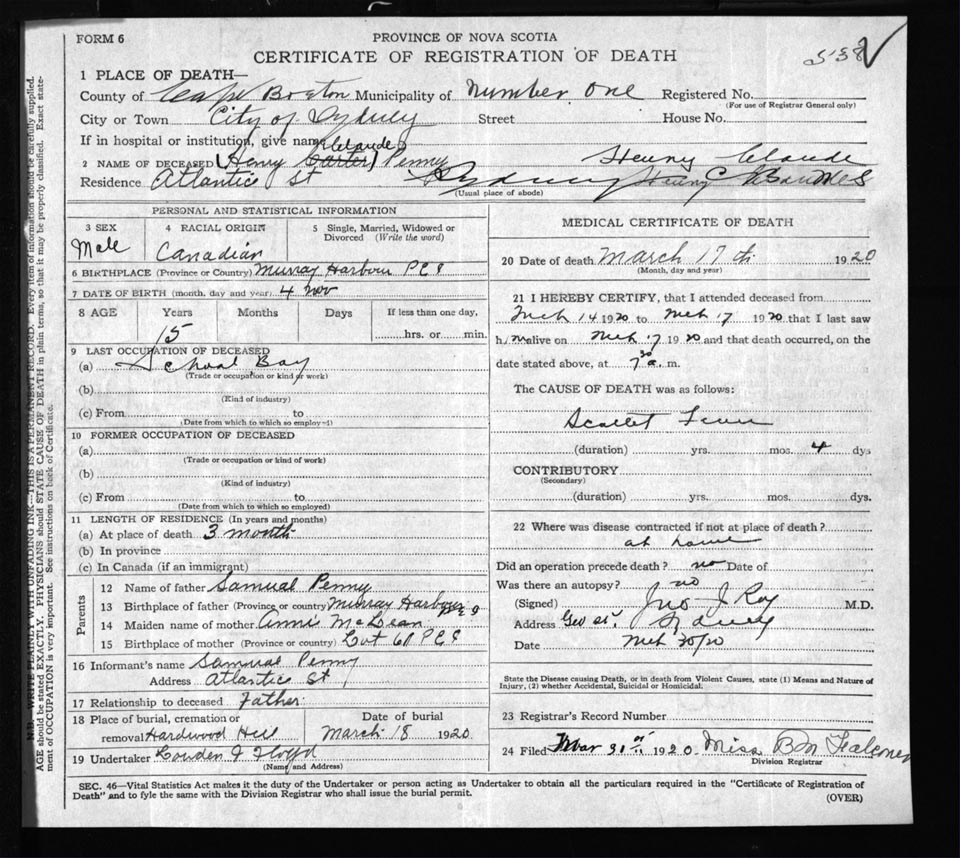 FORM 6
PROVINCE OF NOVA SCOTIA
CERTIFICATE OF REGISTRATION OF DEATH
538
1 PLACE OF DEATH—
County of Cape Breton Municipality of Number One Registered No.
(For use of Registrar General only)
City or Town City of Sydney Street House No.
If in hospital or institution, give name
Claude
2 NAME OF DECEASED (Henry Carter) Penny Henry Claude
Residence Atlantic St Sydney Henry C
(Usual place of abode)
PERSONAL AND STATISTICAL INFORMATION
3 SEX 4 RACIAL ORIGIN 5 Single, Married, Widowed or Divorced (Write the word)
Male Canadian
6 BIRTHPLACE (Province or Country) Murray Harbour P E I
7 DATE OF BIRTH (month, day and year) 4 Nov
8 AGE Years Months Days If less than one day,
15 hrs. or min.
9 LAST OCCUPATION OF DECEASED
(a) School Boy
(Trade or occupation or kind of work)
(b)
(Kind of industry)
(c) From to
(Date from which to which so employed)
10 FORMER OCCUPATION OF DECEASED
(a)
(Trade or occupation or kind of work)
(b)
(Kind of industry)
(c) From to
(Date from which to which so employed)
11 LENGTH OF RESIDENCE (In years and months)
(a) At place of death 3 month
(b) In province
(c) In Canada (if an immigrant)
Parents
12 Name of father Samual Penny
13 Birthplace of father (Province or country) Murray Harbour P E I
14 Maiden name of mother Annie McLean
15 Birthplace of mother (Province or country) Lot 60 P E I
16 Informant's name Samual Penny
Address Atlantic St
17 Relationship to deceased Father
18 Place of burial, cremation or Date of burial
removal Hardwood Hill March 18 1920
19 Undertaker Lowden & Floyd
(Name and Address)
MEDICAL CERTIFICATE OF DEATH
20 Date of death March 17th 1920
(Month, day and year)
21 I HEREBY CERTIFY, that I attended deceased from
Mch 14 1920 to Mch 17 1920 that I last saw
h im alive on Mch 17 1920 and that death occurred, on the
date stated above, at 7 30 a. m.
The CAUSE OF DEATH was as follows:
Scarlet Fever
(duration) yrs. mos. 4 dys
CONTRIBUTORY
(Secondary)
(duration) yrs. mos. dys.
22 Where was disease contracted if not at place of death?
at home
Did an operation precede death? no Date of
Was there an autopsy? no
(Signed) Jno J Roy M.D.
Address Geo St. Sydney
Date Mch 30/20
State the Disease causing Death, or in death from Violent Causes, state (1) Means and Nature of
Injury, (2) whether Accidental, Suicidal or Homicidal.
23 Registrar's Record Number
24 Filed Mar 31st 1920 Miss B M Falconer
Division Registrar
SEC. 46—Vital Statistics Act makes it the duty of the Undertaker or person acting as Undertaker to obtain all the particulars required in the "Certificate of Registration of
Death" and to fyle the same with the Division Registrar who shall issue the burial permit.
(OVER)
N.B.—WRITE PLAINLY WITH UNFADING INK—THIS IS A PERMANENT RECORD. Every item of information should be carefully supplied.
AGE should be stated EXACTLY. PHYSICIANS should STATE CAUSE OF DEATH in plain terms, so that it may be properly classified. Exact state-
ment of OCCUPATION is very important. See instructions on back of Certificate.